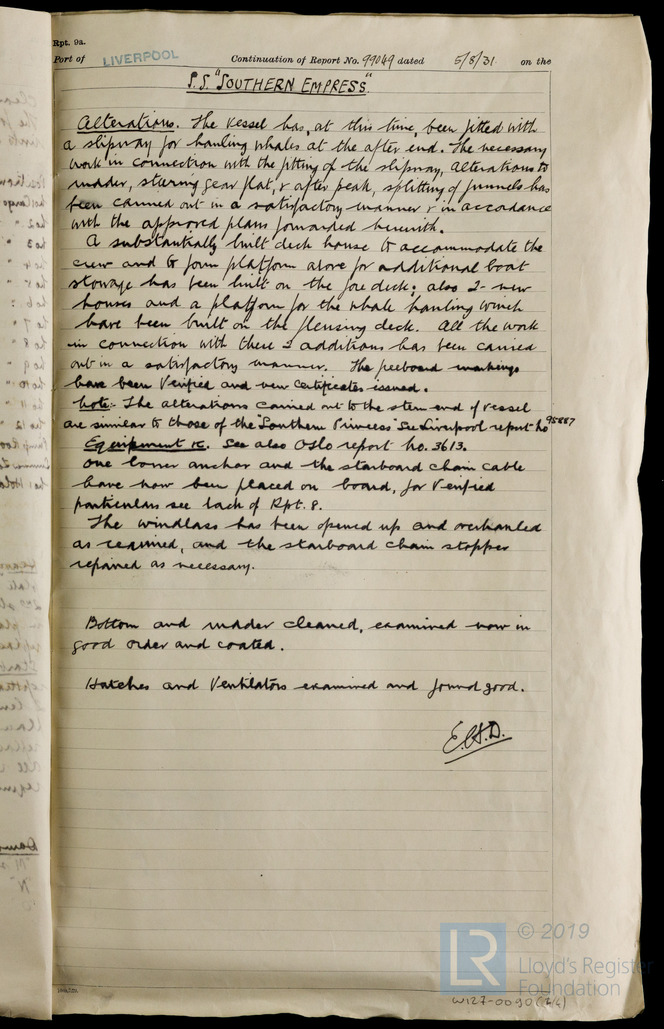 Rpt. 9a.
Port of LIVERPOOL Continuation of Report No. 99049 dated 5/8/31 on the
S.S. "SOUTHERN EMPRESS"
Alterations. The vessel has, at this time, been fitted with
a slipway for hauling whales at the after end. The necessary
work in connection with the fitting of the slipway, alterations to
rudder, steering gear flat, & after peak, splitting of funnels has
been carried out in a satisfactory manner & in accordance
with the approved plans forwarded herewith.
A substantially built deck house to accommodate the
crew and to form platform above for additional boat
stowage has been built on the fore deck; also 2 new
houses and a platform for the whale hauling winch
have been built on the flensing deck. All the work
in connection with these additions has been carried
out in a satisfactory manner. The freeboard markings
have been Verified and new certificates issued.
Note:- The alterations carried out to the stern end of vessel
are similar to those of the "Southern Princess" See Liverpool report No 95887
Equipment &c. See also Oslo report No. 3613.
One bower anchor and the starboard chain cable
have now been placed on board, for Verified
particulars see back of Rpt. 8.
The windlass has been opened up and overhauled
as required, and the starboard chain stopper
repaired as necessary.
Bottom and rudder cleaned, examined now in
good order and coated.
Hatches and Ventilators examined and found good.
© 2019
LR
Lloyd's Register
Foundation